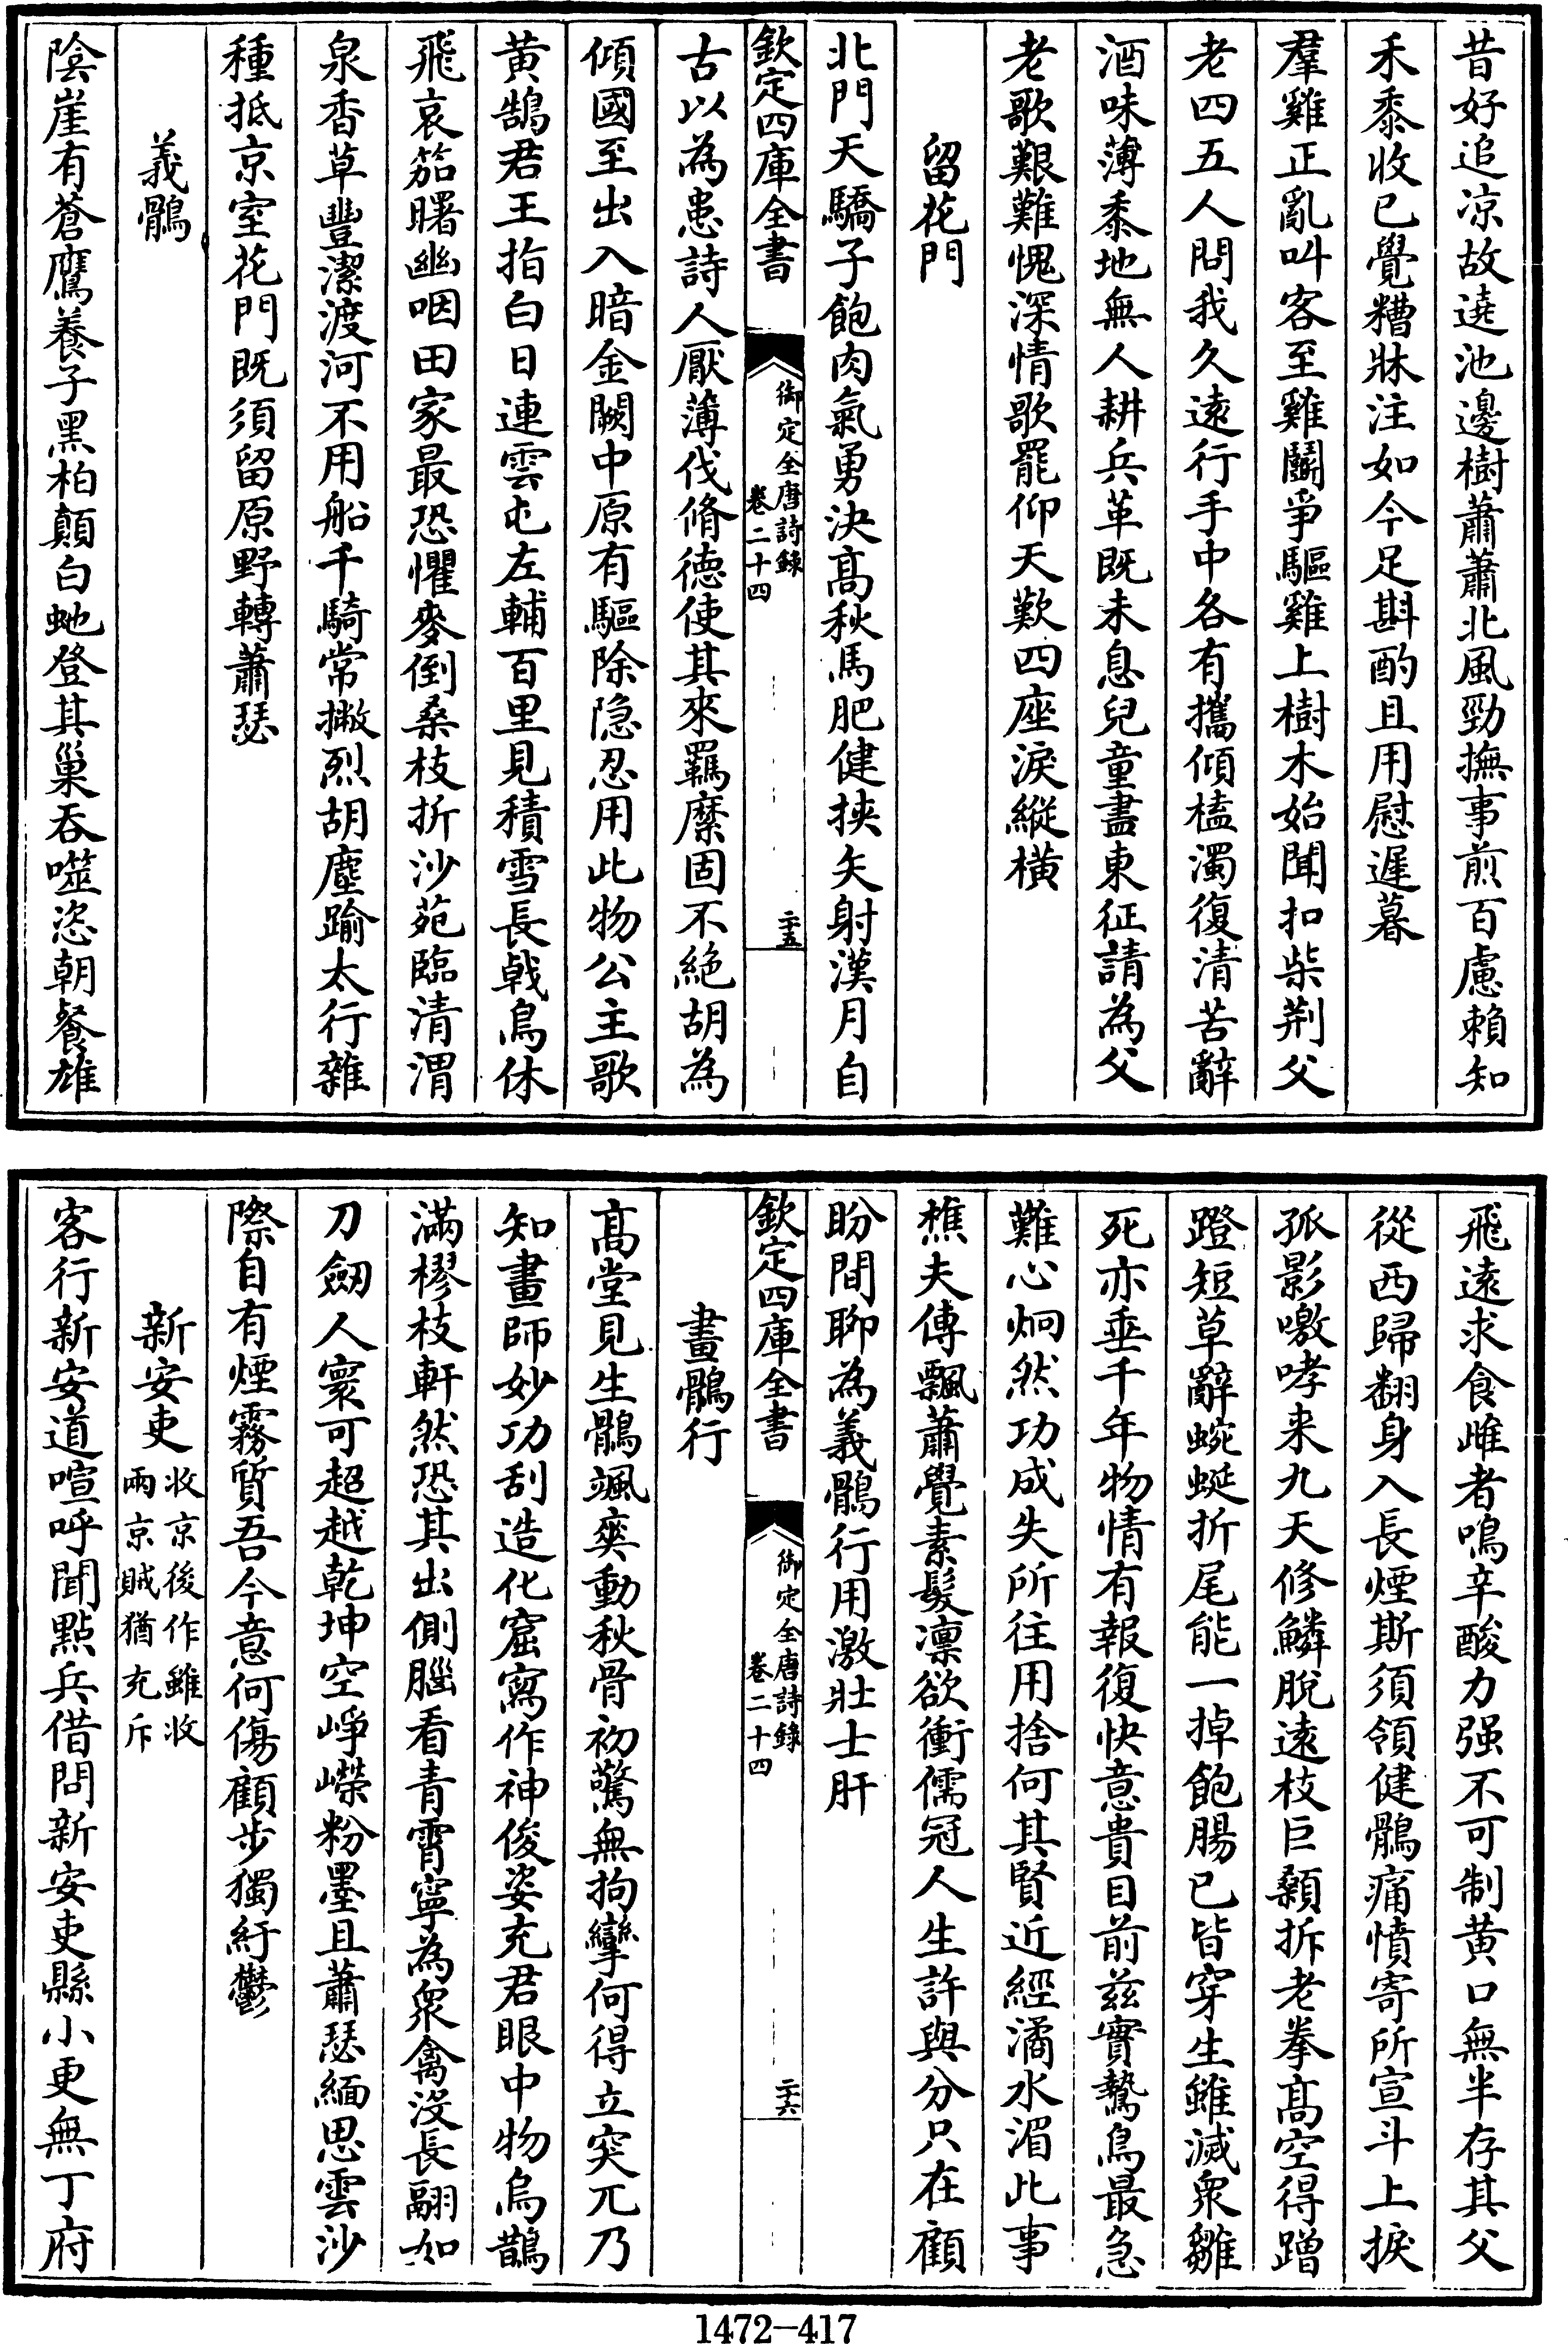 昔好追凉故遶池邊樹蕭蕭北風勁撫事煎百慮賴知
禾黍收已覺糟牀注如今足斟酌且用慰遲暮
羣雞正亂叫客至雞鬭爭驅雞上樹木始聞扣柴荆父
老四五人問我久遠行手中各有攜傾榼濁復清苦辭
酒味薄黍地無人耕兵革既未息兒童盡東征請為父
老歌艱難愧深情歌罷仰天歎四座淚縱橫
留花門
北門天驕子飽肉氣勇決髙秋馬肥健挾矢射漢月自
欽定四庫全書
御定全唐詩錄
卷二十四
二十五
古以為患詩人厭薄伐脩德使其來羈縻固不絶胡為
傾國至出入暗金闕中原有驅除隐忍用此物公主歌
黄鵠君王指白日連雲屯左輔百里見積雪長㦸鳥休
飛哀笳曙幽咽田家最恐懼麥倒桑枝折沙苑臨清渭
泉香草豐潔渡河不用船千騎常撇烈胡塵踰太行雜
種抵京室花門既須留原野轉蕭瑟
義鶻
陰崖有蒼鷹養子黑柏顛白虵登其巢吞噬恣朝餐雄
飛遠求食雌者鳴辛酸力强不可制黄口無半存其父
從西歸翻身入長煙斯須領健鶻痛憤寄所宣斗上捩
孤影噭哮来九天修鱗脫遠枝巨顙拆老拳髙空得蹭
蹬短草辭蜿蜒折尾能一掉飽腸已皆穿生雖滅衆雛
死亦垂千年物情有報復快意貴目前兹實鷙鳥最急
難心炯然功成失所往用捨何其賢近經潏水湄此事
樵夫傳飄蕭覺素髮凛欲衝儒冠人生許與分只在顧
盼間聊為義鶻行用激壯士肝
欽定四庫全書
御定全唐詩錄
卷二十四
二十六
畫鶻行
髙堂見生鶻颯爽動秋骨初驚無拘攣何得立突兀乃
知畫師妙功刮造化窟寫作神俊姿充君眼中物烏鵲
滿樛枝軒然恐其出側腦看青霄寧為衆禽没長翮如
刀劒人寰可超越乾坤空崢嶸粉墨且蕭瑟緬思雲沙
際自有煙霧質吾今意何傷顧步獨紆鬱
新安吏 收京後作雖收
兩京賊猶充斥
客行新安道喧呼聞點兵借問新安吏縣小更無丁府
1472-417